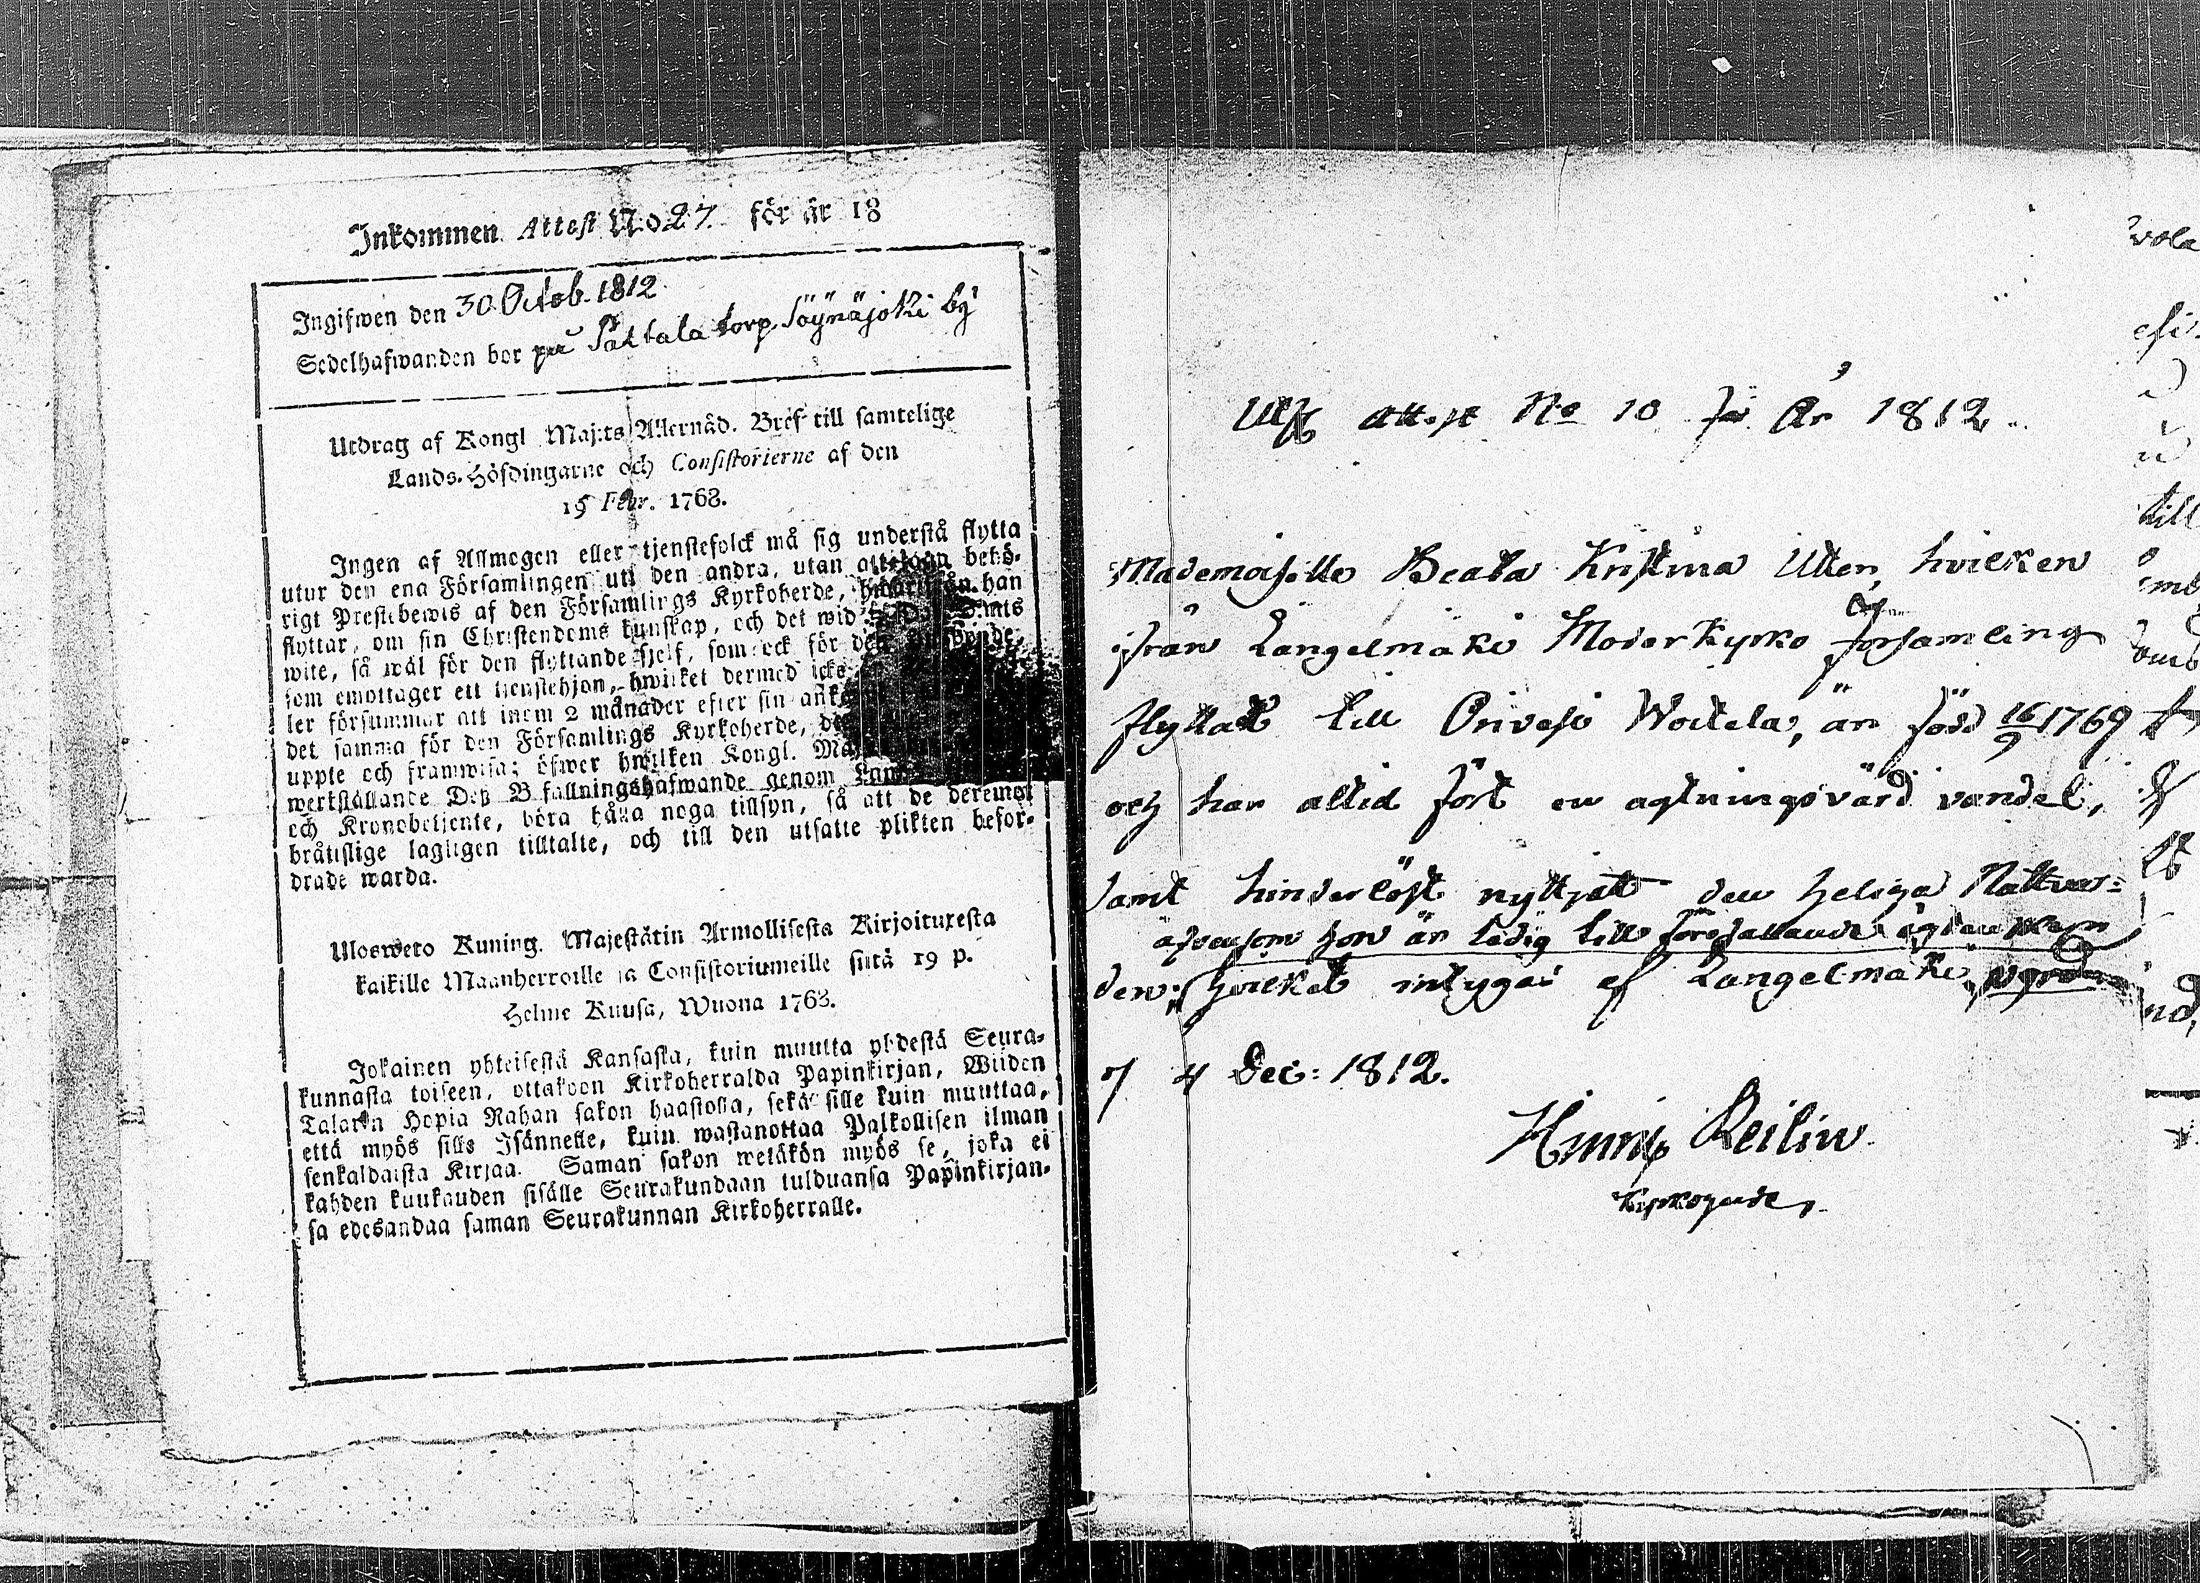 Inkommen Attest No 27. för år 18
Ingifwen den 30 Octob. 1812.
Sedelhafwanden bor på torp Söynäjoki by
Utdrag af Kongl Maj:ts Allernåd. Bref till samtelige
Lands-Höfdingarne och Consistorierne af den
Febr. 1768.
Ingen af Allmogen eller tjenstefolck må sig understå flytta
utur den ena Församlingen uti den andra, utan behö-
rigt Prestebewis af den Församlings Kyrkoherde, hwarifrån han
flyttar, om sin Christendoms kunskap, och det wid
wite, så wäl för den flyttande sjelf, som ock för den
som emottager ett tjenstehjon, hwilket dermed icke
ler försummar att inom 2 månader efter sin
det samma för den Församlings Kyrkoherde,
uppte och framwisa; öfwer hwilken Kongl.
werkställande Deß Befallningshafwande genom
och Kronobetjente, böra hålla noga tillsyn, så att de deremot
bråttslige lagligen tilltalte, och till den utsatte plikten befor-
drade warda.
Ulosweto Kuning. Majestätin Armollisesta Kirjoituxesta
kaikille Maanherroille ja Consistoriumeille siitä 19 p.
Helme Kuusa, Wuona 1768.
Jokainen yhteisestä Kansasta, kuin muutta yhdestä Seura-
kunnasta toiseen, ottakoon Kirkoherralda Papinkirjan, Wiiden
Talarin Hopia Rahan sakon haastolla, sekä sille kuin muuttaa,
että myös sille Isännelle, kuin wastanottaa Palkollisen ilman
senkaldaista Kirjaa. Saman sakon wetäkön myös se, joka ei
kahden kuukauden sisälle Seurakundaan tulduansa Papinkirjan-
sa edesandaa saman Seurakunnan Kirkoherralle.
attest No 10 för År 1812.
Mademoiselle Beata Kristina Utter, hvilken
ifrån Längelmäki Moderkyrko församling
flyttat till Orivesi Woitela, är född 16/9 1769
och har altid fört en agtningsvärd vandel,
samt hinderlöst nyttjat den heliga Nattvar=
äfvensom hon är ledig till förefallande
den; hvilket intygas af Längelmäki
4 Dec: 1812.
Henric Reilin
Kyrkoherde
till